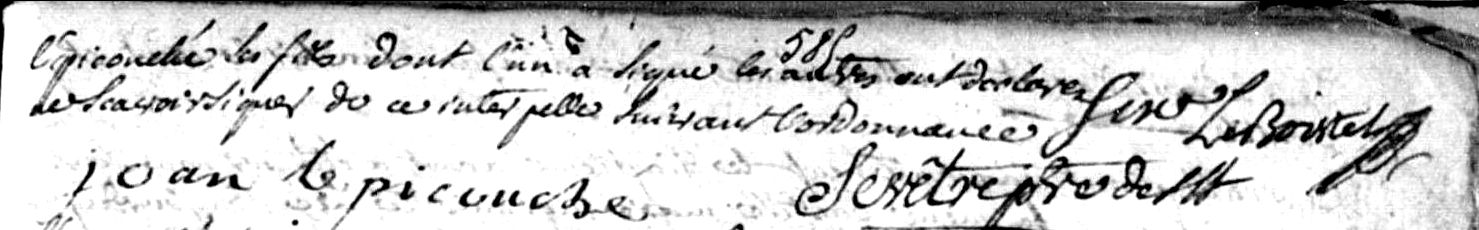 lepicouché les fils dont l'un a signé les autres ont declarez
ne Scavoir Signer de ce interpellé Suivant l'ordonnance
Le Boistel
joan le picouche Levêtre ptre